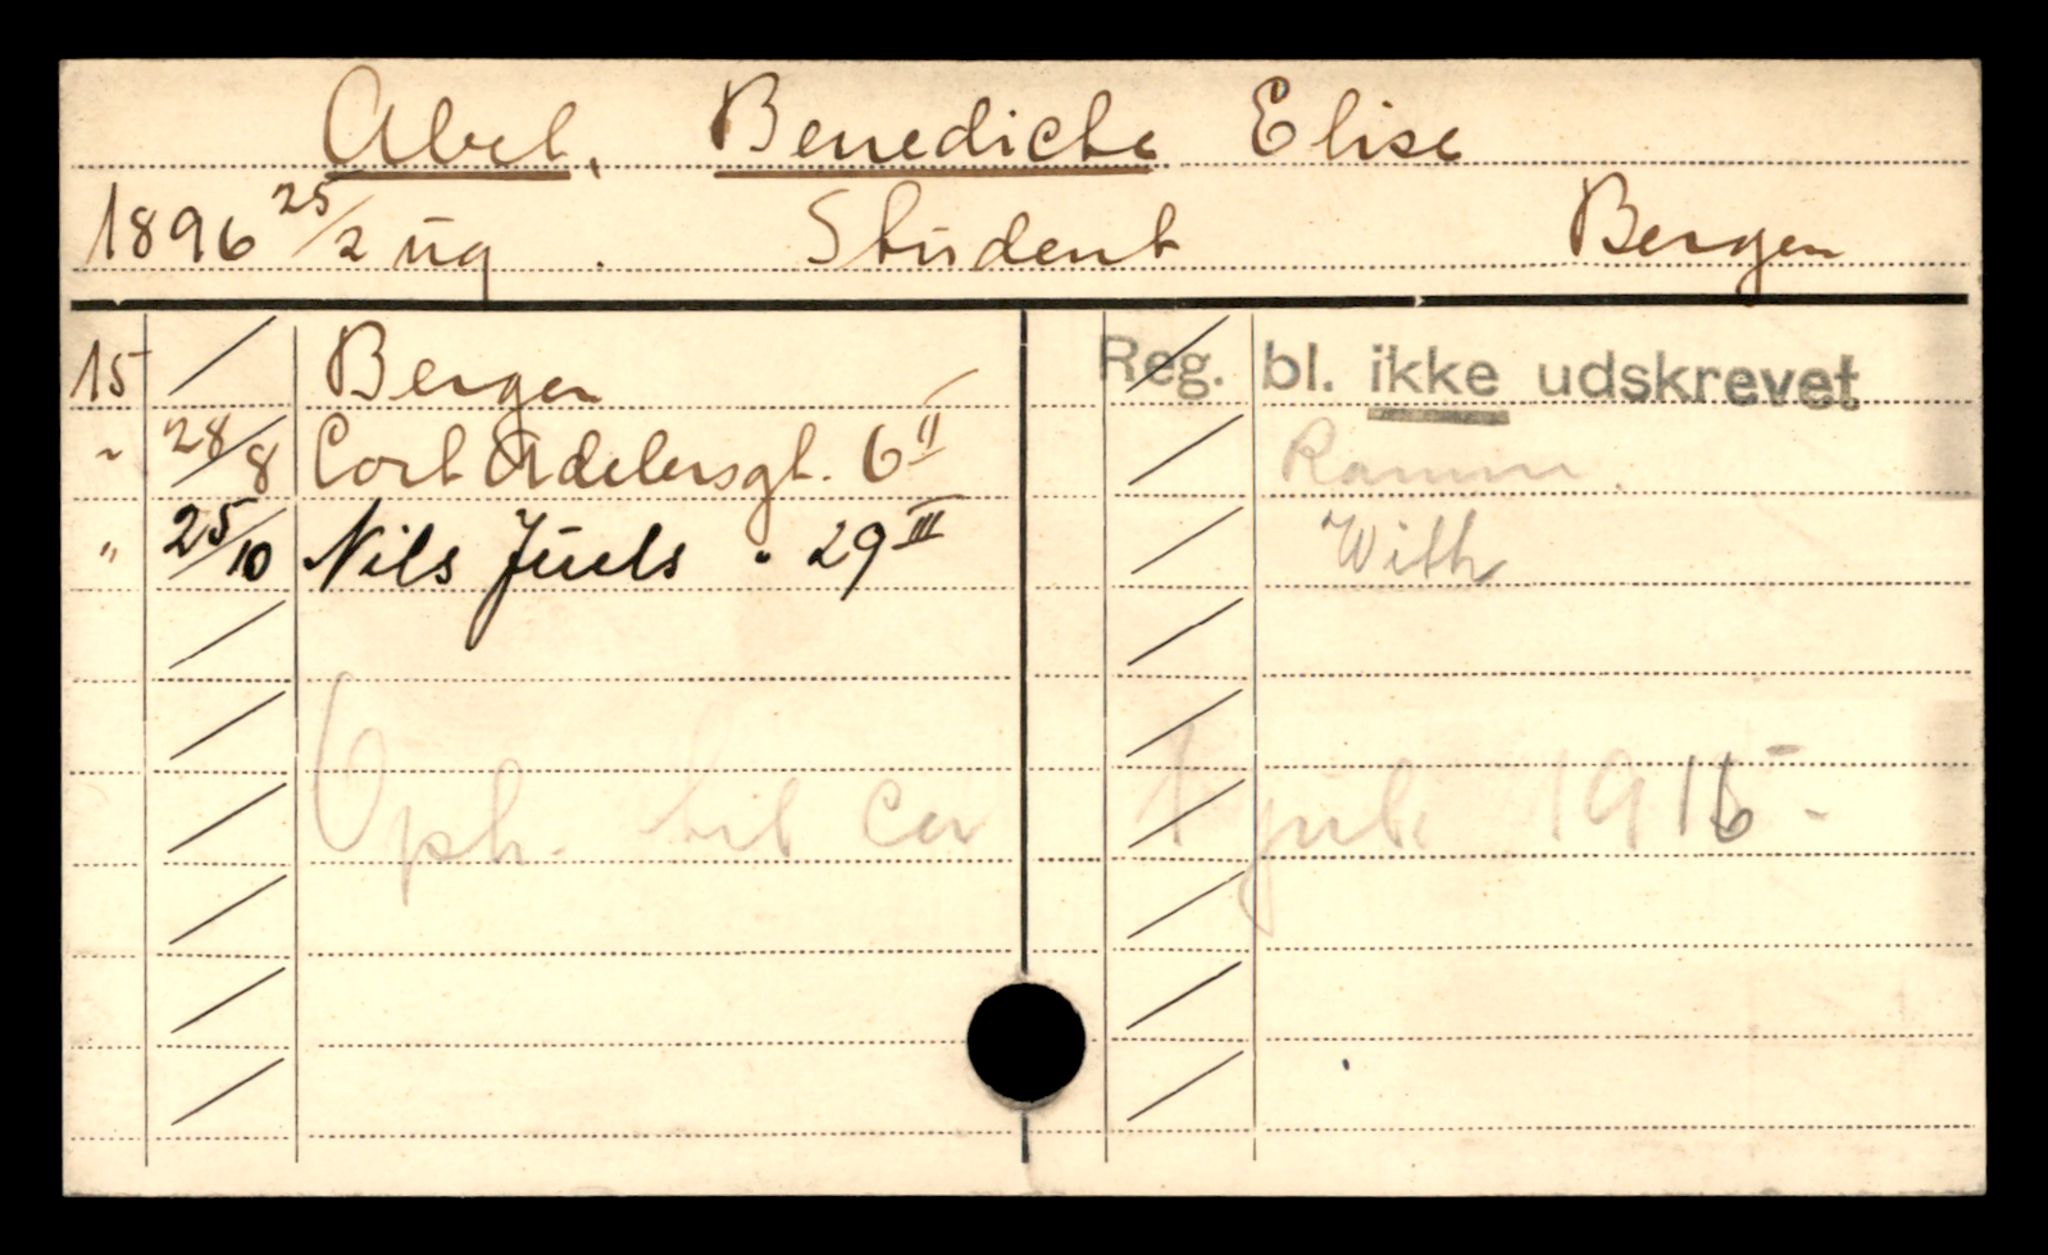 Abel, Benedicte Elise
1896 25/2 ug. Student Bergen
15 / Bergen
Reg. bl. ikke udskrevet
" 28/8 Cort Adelersgt. 6 II
Ramm.
" 25/10 Nils Juels " 29 III
With
Oph. til ca 1 juli 1916 -